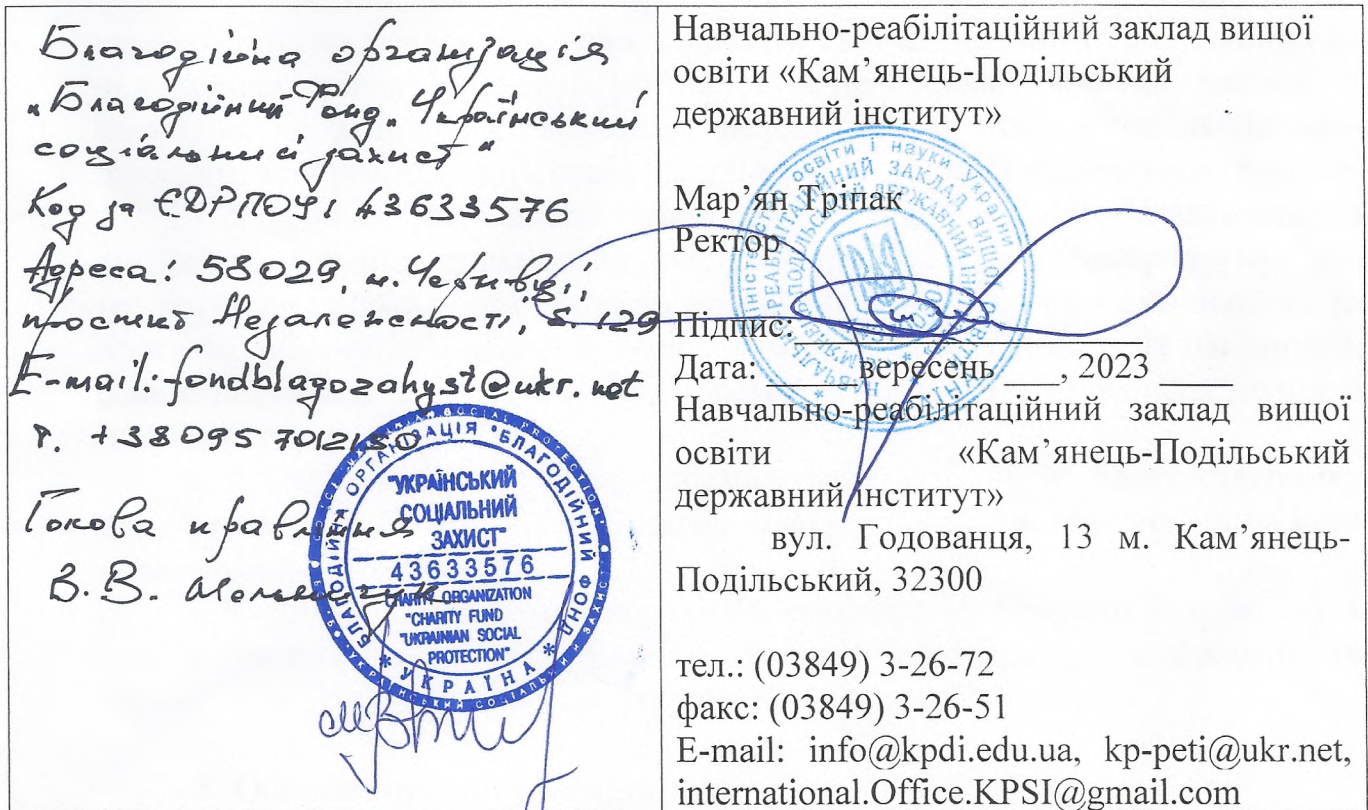 Благодійна організація
„Благодійний Фонд „Український
соціальний захист"
Код за ЄДРПОУ: 43633576
Адреса: 58029, м. Чернівці,
проспект Незалежності, б. 129
E-mail: fondblagozahyst@ukr.net
т. +38095 7012150
Голова правління
В.В. Мельничук
БЛАГОДІЙНА ОРГАНІЗАЦІЯ "БЛАГОДІЙНИЙ ФОНД
* УКРАЇНА *
"УКРАЇНСЬКИЙ
СОЦІАЛЬНИЙ
ЗАХИСТ"
43633576
CHARITY ORGANIZATION
"CHARITY FUND
"UKRAINIAN SOCIAL
PROTECTION"
Навчально-реабілітаційний заклад вищої
освіти «Кам’янець-Подільський
державний інститут»
Мар’ян Тріпак
Ректор
Підпис:
Дата: ____ вересень ___, 2023
Навчально-реабілітаційний заклад вищої
освіти «Кам’янець-Подільський
державний інститут»
вул. Годованця, 13 м. Кам’янець-
Подільський, 32300
тел.: (03849) 3-26-72
факс: (03849) 3-26-51
E-mail: info@kpdi.edu.ua, kp-peti@ukr.net,
international.Office.KPSI@gmail.com